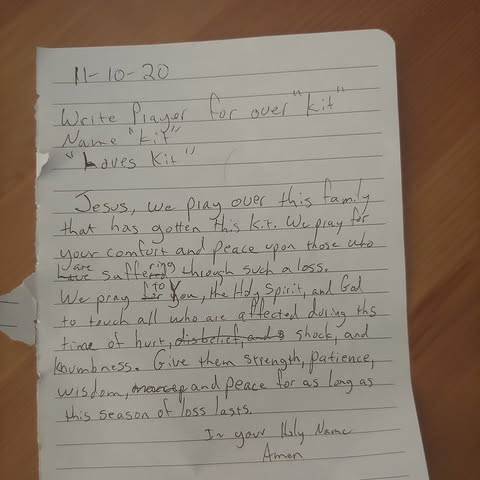 11-10-20
Write Prayer for over "kit"
Name "Kit"
"Loves Kit"
Jesus, we pray over this family
that has gotten this kit. We pray for
your comfort and peace upon those who
are
have suffering through such a loss.
We pray for to You, the Holy Spirit, and God
to touch all who are affected during ths
time of hurt, disbelief, and shock, and
knumbness. Give them strength, patience,
wisdom, and peace for as long as
this season of loss lasts.
In your Holy Name
Amen